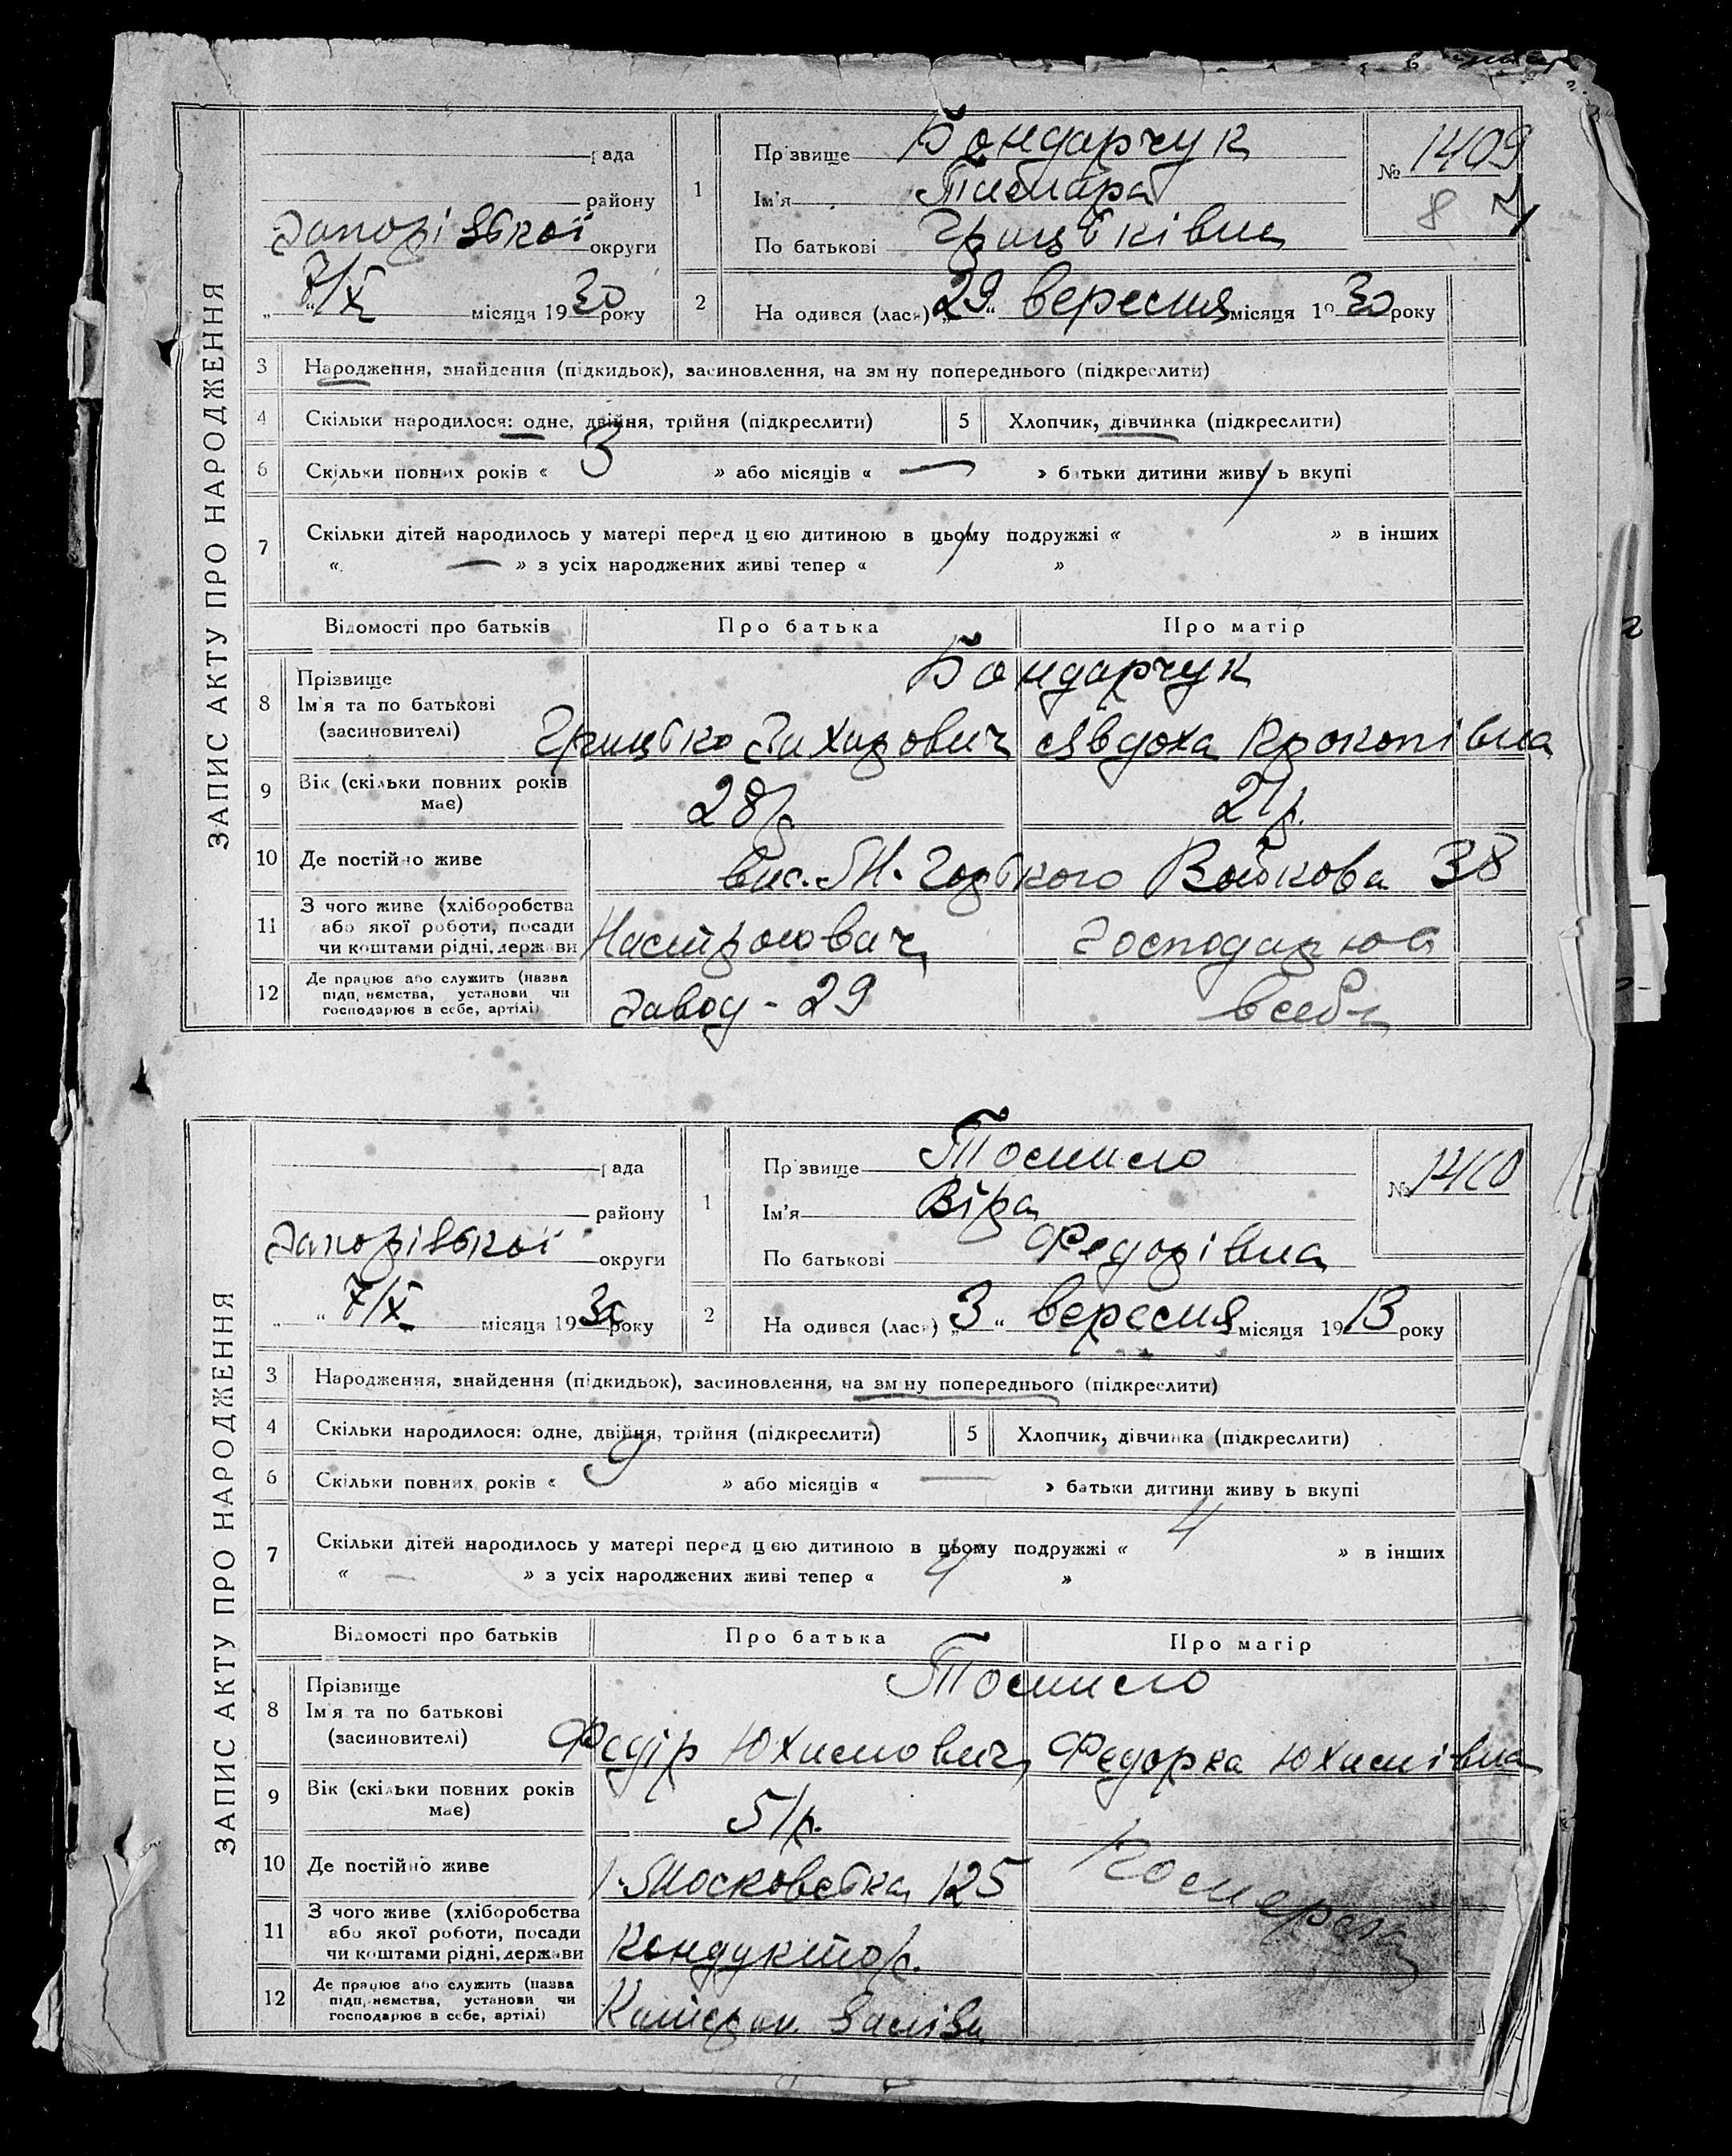 ЗАПИС АКТУ ПРО НАРОДЖЕННЯ
рада
району
Запорізької округи
„ 7/X місяця 1930 року
1 Прізвище Бондарчук
Ім'я Тамара
По батькові Грицьківна
№ 1409
8
2 На одився (лася) „29“ вересня місяця 1930 року
3 Народження, знайдення (підкидьок), засиновлення, на зміну попереднього (підкреслити)
4 Скільки народилося: одне, двійня, трійня (підкреслити) 5 Хлопчик, дівчинка (підкреслити)
6 Скільки повних років « 3 » або місяців « — » батьки дитини живуть вкупі
7 Скільки дітей народилось у матері перед цією дитиною в цьому подружжі « 1 » в інших
« — » з усіх народжених живі тепер « 1 »
Відомості про батьків Про батька Про матір
8 Прізвище Ім'я та по батькові (засиновителі)
Бондарчук
Грицько Захарович Явдоха Прокопівна
9 Вік (скільки повних років має) 28р 21р.
10 Де постійно живе вис. М. Горького Войкова 38
11 З чого живе (хліборобства
або якої роботи, посади
чи коштами рідні, держави Настроювач Господарює
12 Де працює або служить (назва
підприємства, установи чи
господарює в себе, артілі) Завод - 29 в себе
ЗАПИС АКТУ ПРО НАРОДЖЕННЯ
рада
району
Запорізької округи
„ “ 7/X місяця 1930 року
1 Прізвище Томило
Ім'я Віра
По батькові Федорівна
№ 1410
2 На одився (лася) „3“ вересня місяця 1913 року
3 Народження, знайдення (підкидьок), засиновлення, на зміну попереднього (підкреслити)
4 Скільки народилося: одне, двійня, трійня (підкреслити) 5 Хлопчик, дівчинка (підкреслити)
6 Скільки повних років « 9 » або місяців « — » батьки дитини живуть вкупі
7 Скільки дітей народилось у матері перед цією дитиною в цьому подружжі « 4 » в інших
« — » з усіх народжених живі тепер « 4 »
Відомості про батьків Про батька Про матір
8 Прізвище
Ім'я та по батькові
(засиновителі)
Томило
Федір Юхимович Федорка Юхимівна
9 Вік (скільки повних років має) 51р.
10 Де постійно живе Московська 125 Померла
11 З чого живе (хліборобства
або якої роботи, посади
чи коштами рідні, держави Кондуктор.
12 Де працює або служить (назва
підприємства, установи чи
господарює в себе, артілі)